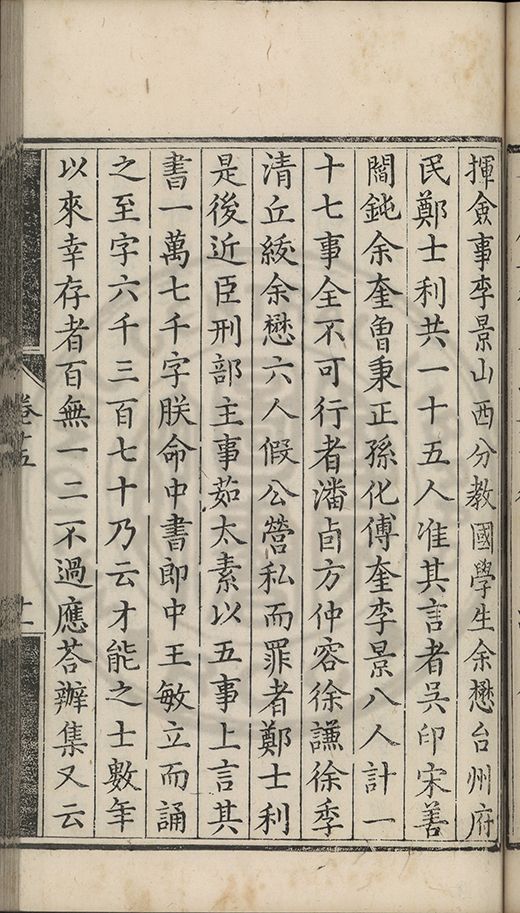 揮僉事李景山西分教國學生余懋台州府
民鄭士利共一十五人准其言者吳印宋善
閻鈍余奎魯秉正孫化傅奎李景八人計一
十七事全不可行者潘卣方仲容徐謙徐季
清丘綏余懋六人假公營私而罪者鄭士利
是後近臣刑部主事茹太素以五事上言其
書一萬七千字朕命中書郎中王敏立而誦
之至字六千三百七十乃云才能之士數年
以來幸存者百無一二不過應荅辦集又云
卷十五